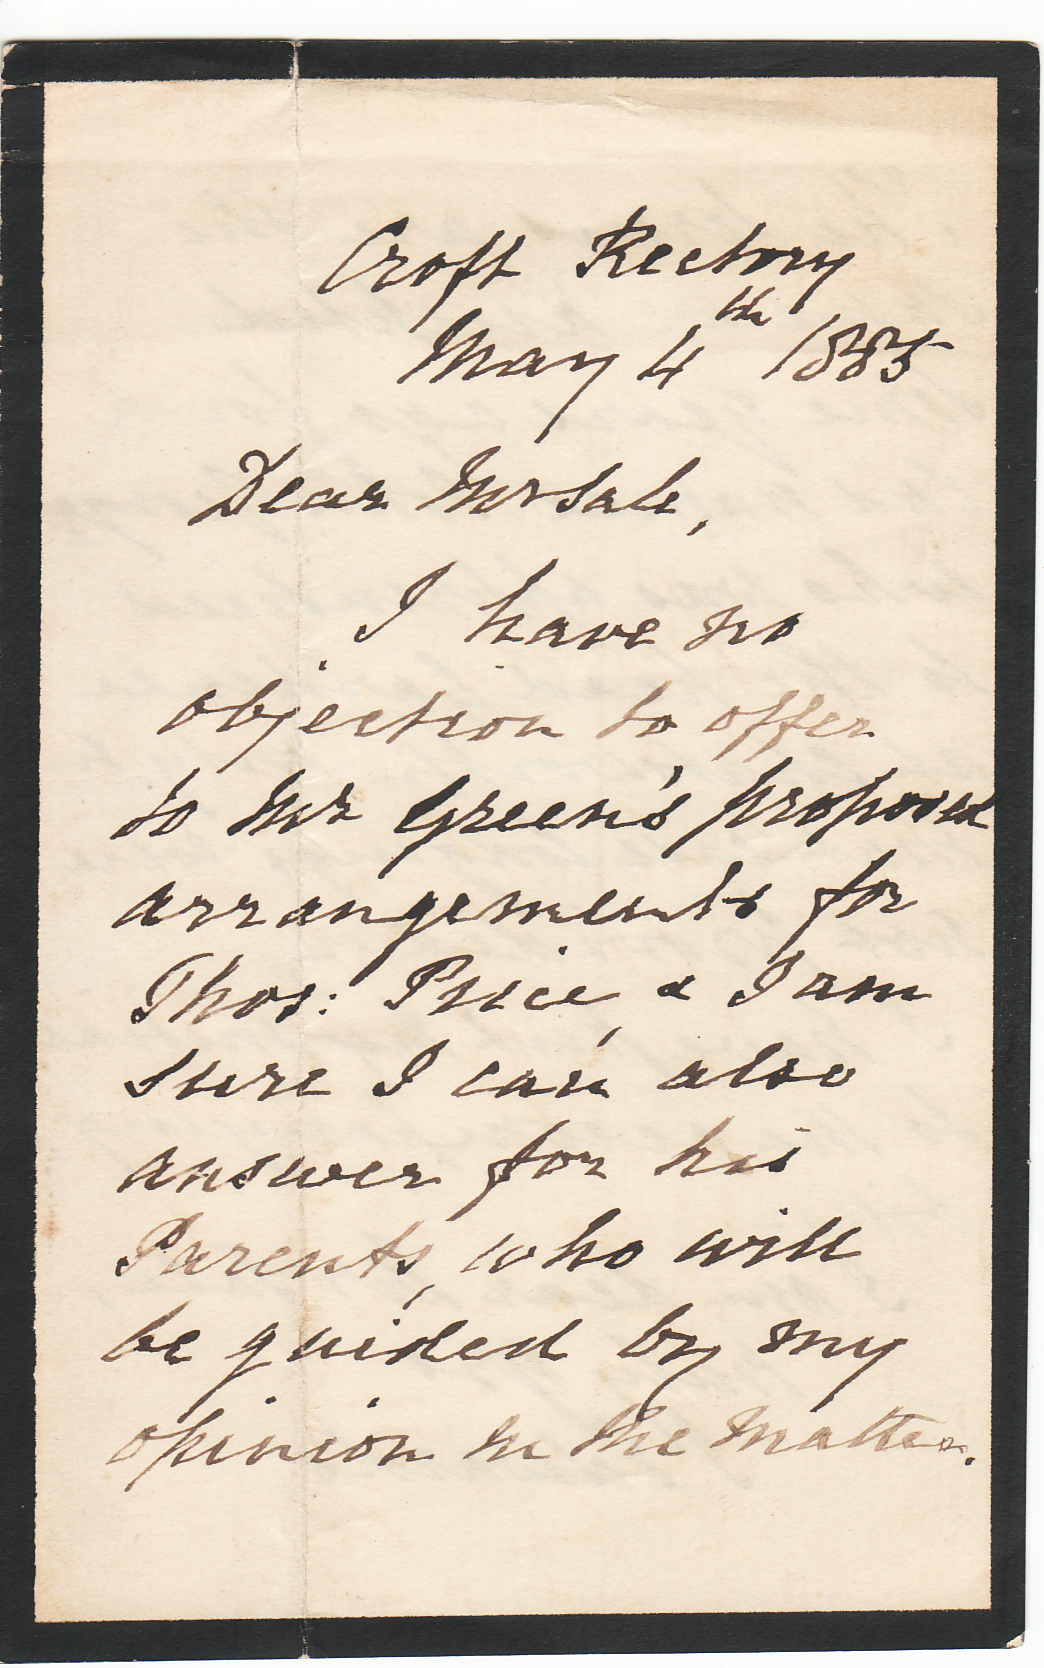 Croft Rectory
May 4th 1885
Dear Mr Sale,
I have no
objection to offer
to Mr Green's proposed
arrangements for
Thos: Price, & I am
sure I can also
answer for his
Parents, who will
be guided by my
opinion in the matter.